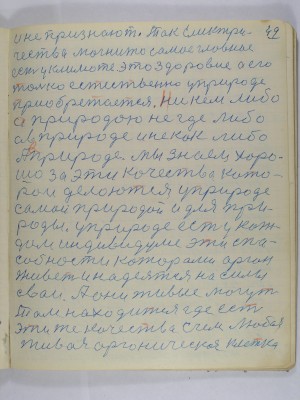 49
и не признают. Так электри-
чества магнито самое главные
есть у климоте это здоровие а его
только естественно уприроде
приобретается, Ни кем либо
а природою не где либо
а в природе и не как либо
А природе. Мы знаем хоро-
шо за эти качества кото-
рои делоются уприроде
самой природой и для при-
роды. уприроде есть у каж
дом индивидуме эти спа-
собности каторами орган
живет и надеятся на силы
сваи, А они живые могут
там находится где есть
эти те качества с чем любая
живая органическая клетка